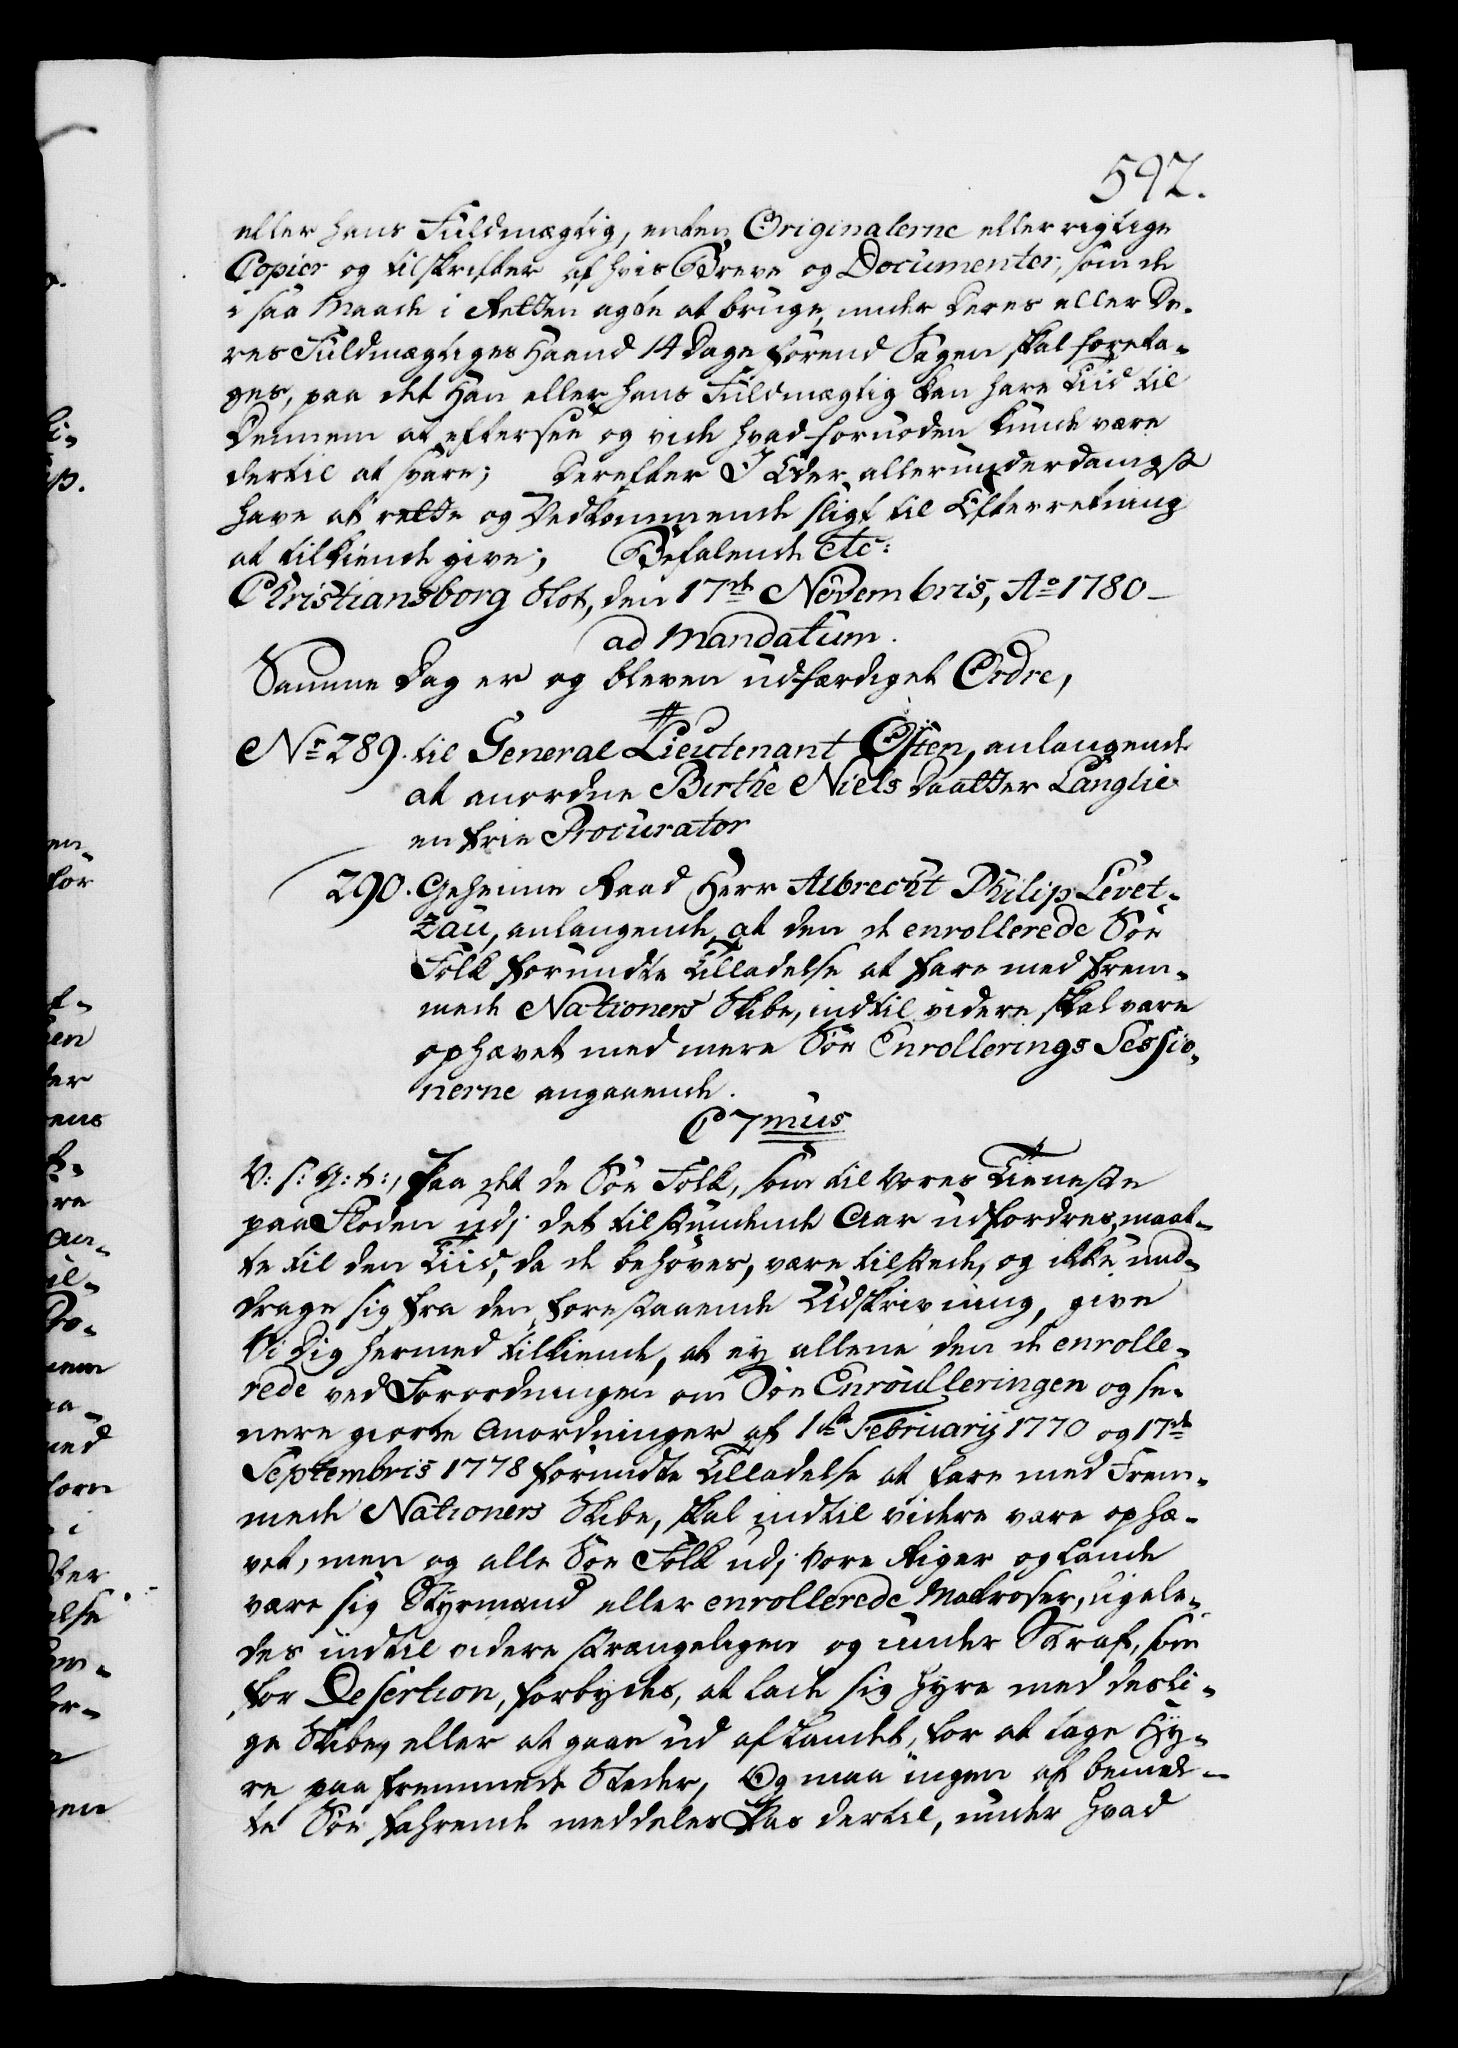 592.
eller hans Fuldmægtig, enten Originalerne eller rigtige
Copier og tilskrifter af hvis Breve og Documenter, som de
i saa Maade i Retten agte at bruge, under deres eller De-
res Fuldmægtiges Haand 14 Dage førend Sagen skal foreta-
ges, paa det Han eller hans Fuldmægtig kan have Tiid til
dennem at eftersee og vide hvad fornøden kunde være
dertil at svare; Derefter I Eder allerunderdanigst
have at rette og Vedkommende sligt til Efterretning
at tilkiende give; Befalende etc:
Christiansborg Slot, den 17de Novembris, Ao 1780 –
ad Mandatum.
Samme Dag er og bleven udfærdiget Ordre,
No 289. til General Lieutenant Osten, anlangende
at anordne Birthe Niels Daatter Langlie
en frie Procurator
290. Geheime Raad Herr Albrecht Philip Levet-
zau, anlangende, at den de enrollerede Søe
Folk forundte Tilladelse at fare med frem-
mede Nationers Skibe, indtil videre skal være
ophævet med mere Søe Enrollerings Sessio-
nerne angaaende.
C 7mus
V: s: G: t:, Paa det de Søe Folk, som til Vores Tieneste
paa Floden udj det tilstundende Aar udfordres, maat-
te til den Tiid, da de behøves, være tilstede, og ikke und-
drage sig fra den forestaaende Udskrivning, give
Vi Dig hermed tilkiende, at ey allene den de enrolle-
rede ved Forordningen om Søe Enroulleringen og se-
nere giorte Anordninger af 1ste Februarij 1770 og 17de
Septembris 1778 forundte Tilladelse at fare med Frem-
mede Nationers Skibe, skal indtil videre være ophæ-
vet, men og alle Søe Folk udj Vore Riger og Lande
være sig Styrmænd eller enrollerede Matroser, ligele-
des indtil videre strængeligen og under Straf, som
for Desertion, forbydes, at lade sig hyre med desli-
ge Skibe, eller at gaae ud af Landet, for at tage Hy-
re paa fremmede Steder, Og maa ingen af bemeld-
te Søe fahrende meddeles Pas dertil, under hvad